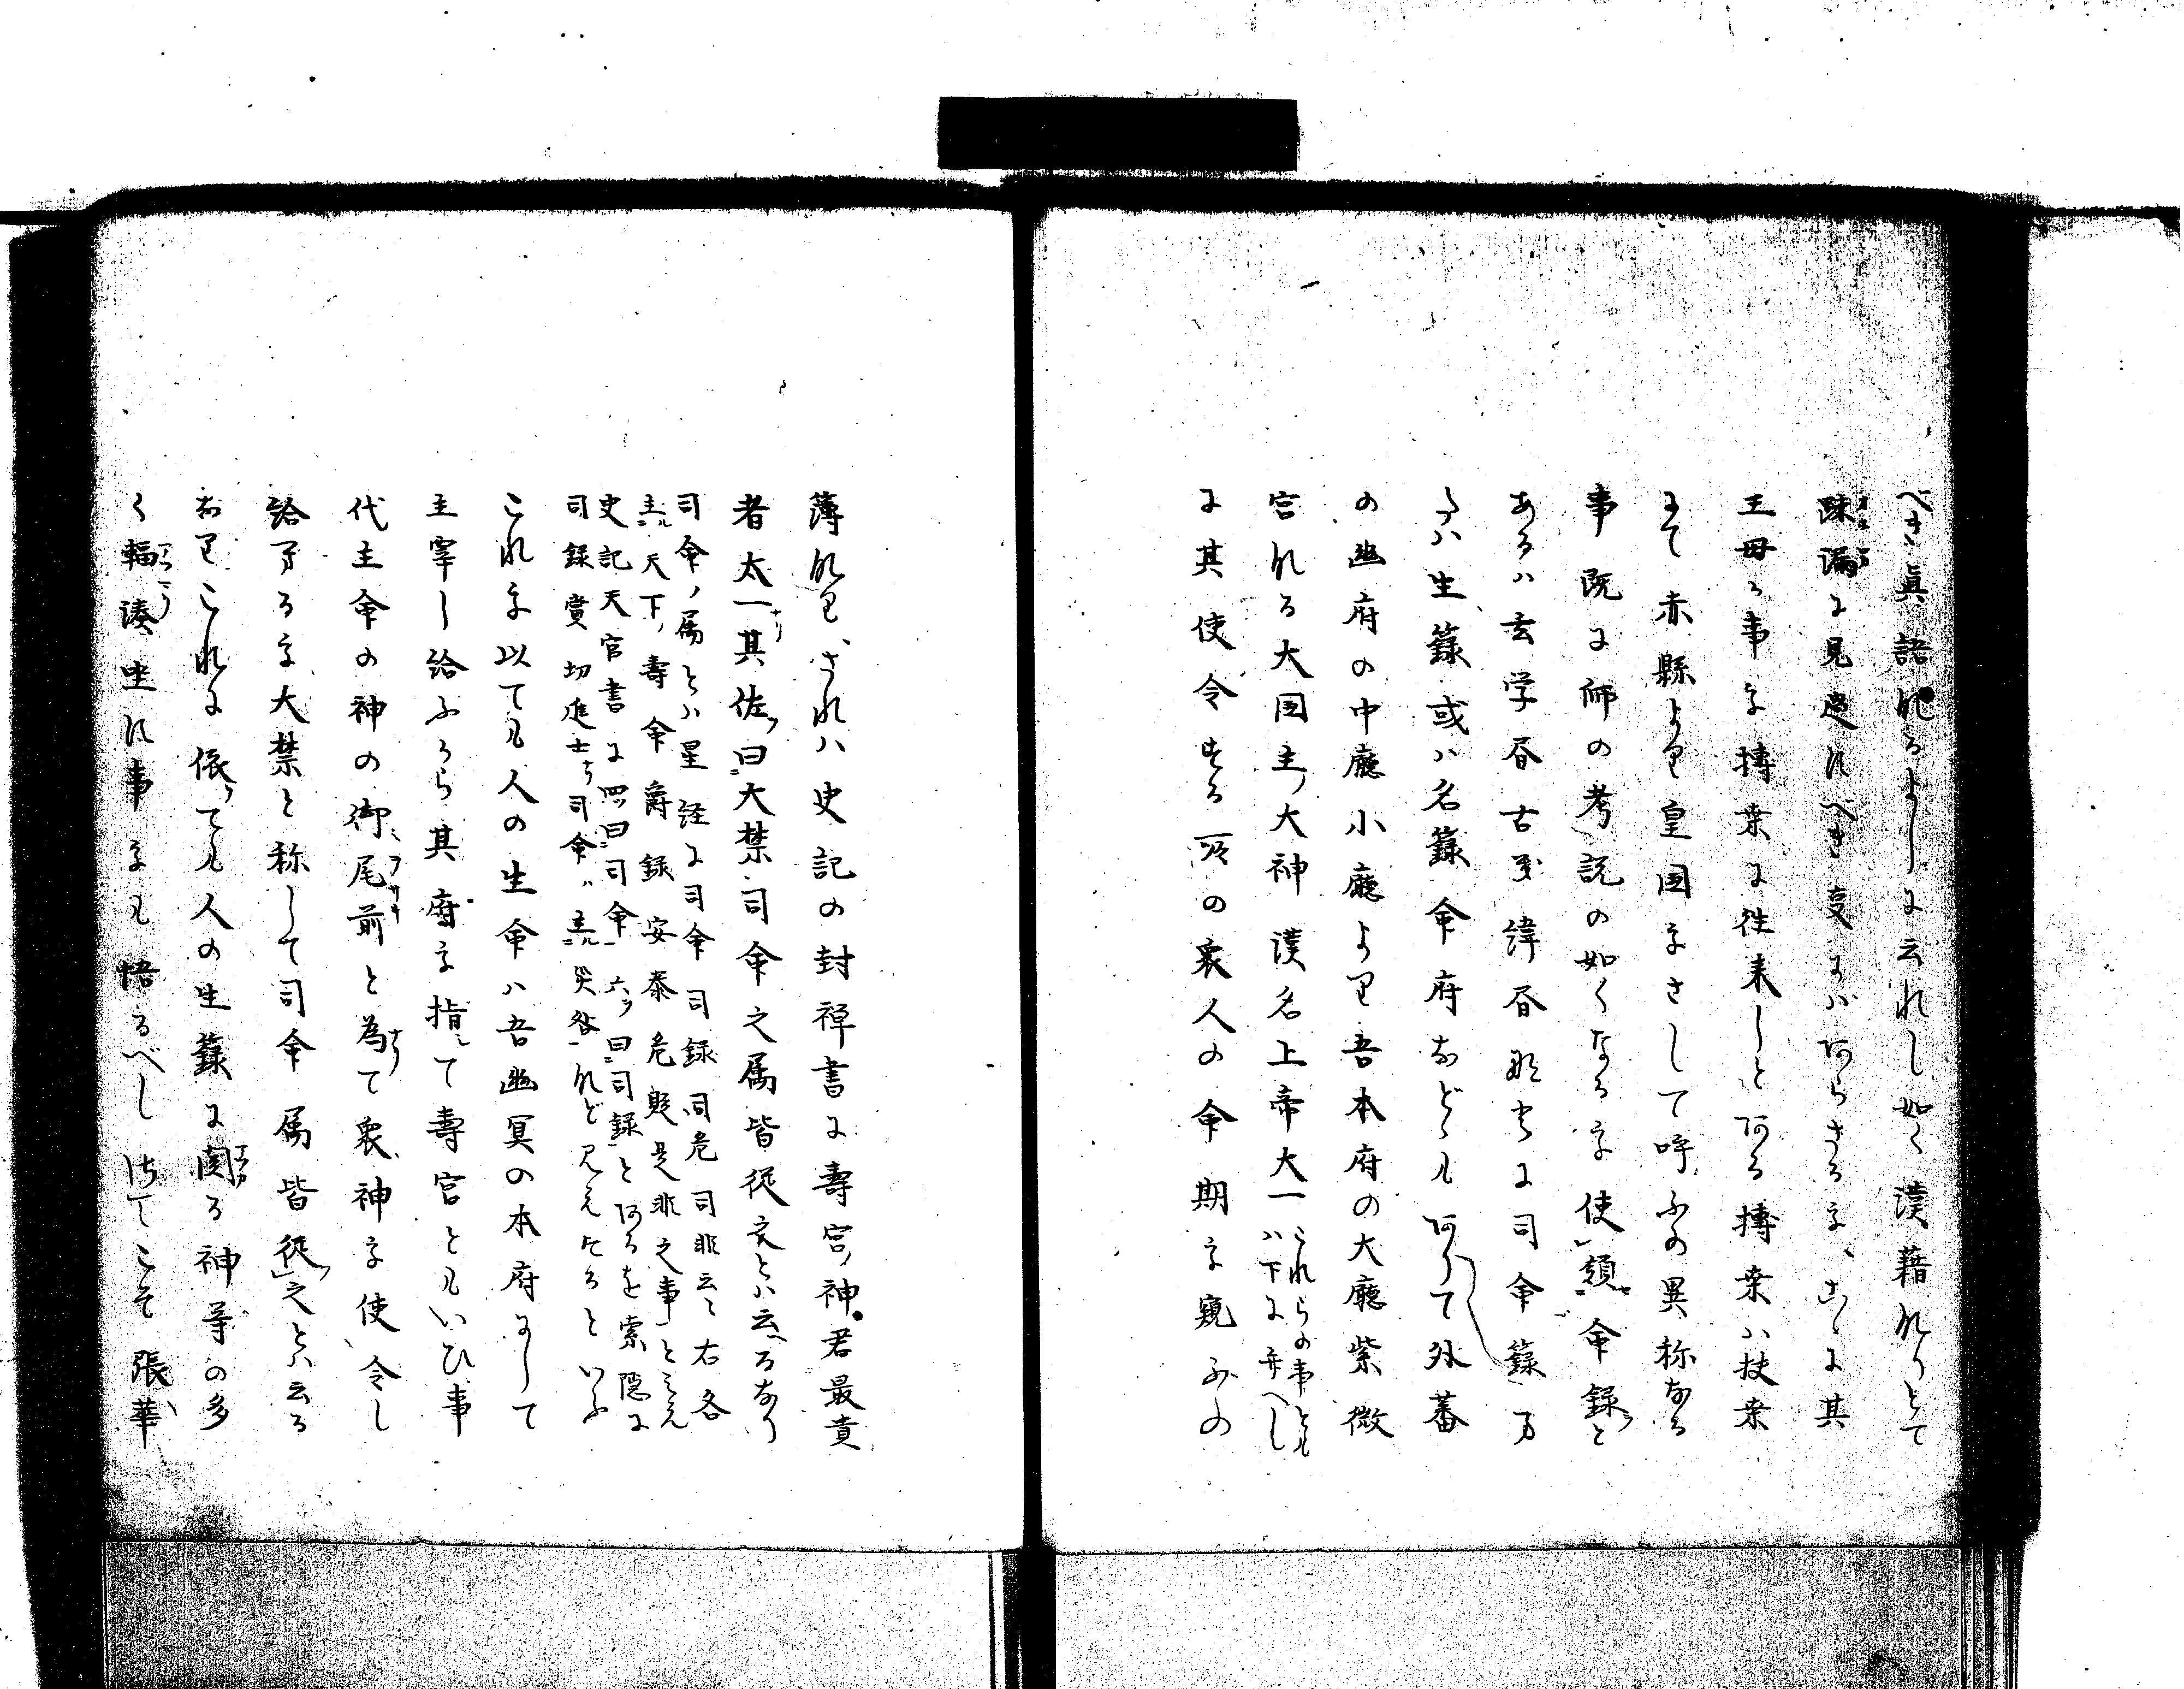 べき真語なるよしに云れし如く漢籍なりとて
踈漏に見過すべき変にハあらさるを、こゝに其
王母ゟ事を搏桒に往来しとある搏桒ハ扶桒
にて赤縣より皇国をさして呼ふの異称なる
事既に師の考説の如くなるを使頒命録と
あるハ玄学書古史緯書歌書に司命籙乃
ハ生籙或ハ名籙命府などゝもありて外蕃
の幽府の中廳小廳より吾本府の大廳紫微
宮なる大国主ノ大神漢名上帝大一
これらの事とも
ハ下に弁へし
に其使令せる所の衆人の命期を窺ふの
薄なり、されハ史記の封禅書に壽宮ノ神君最貴
者太一其佐ヲ曰大禁司命之属皆従之とハ云るなり
司命ノ属とハ星経に司命司録司危司非云々右各
主ル天下ノ壽命爵録安泰危敗是非之事とみえ
史記天官書に四ヲ曰司命六ヲ曰司録とあるを索隠に
司録賞功進士ヲ司命ハ主ル災咎なと見えたるといふ
これを以ても人の生命ハ吾幽冥の本府にして
主宰し給ふから其府を指て壽宮ともいひ事
代主命の神の御尾前と為て衆神を使令し
給ふるを大禁と称して司命属皆従之とハ云る
なりこれに依ても人の生籙に関る神等の多
く輻湊坐す事をも悟るべしこそ張華